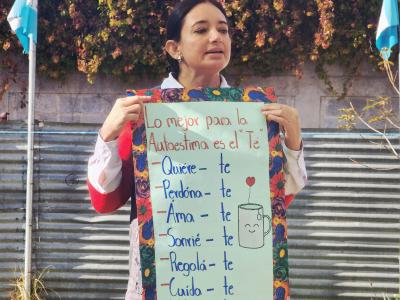 Lo mejor para la
Autoestima es el "Té"
- Quiére - te
- Perdóna - te
- Áma - te
- Sonríé - te
- Regolá - te
- Cuida - te